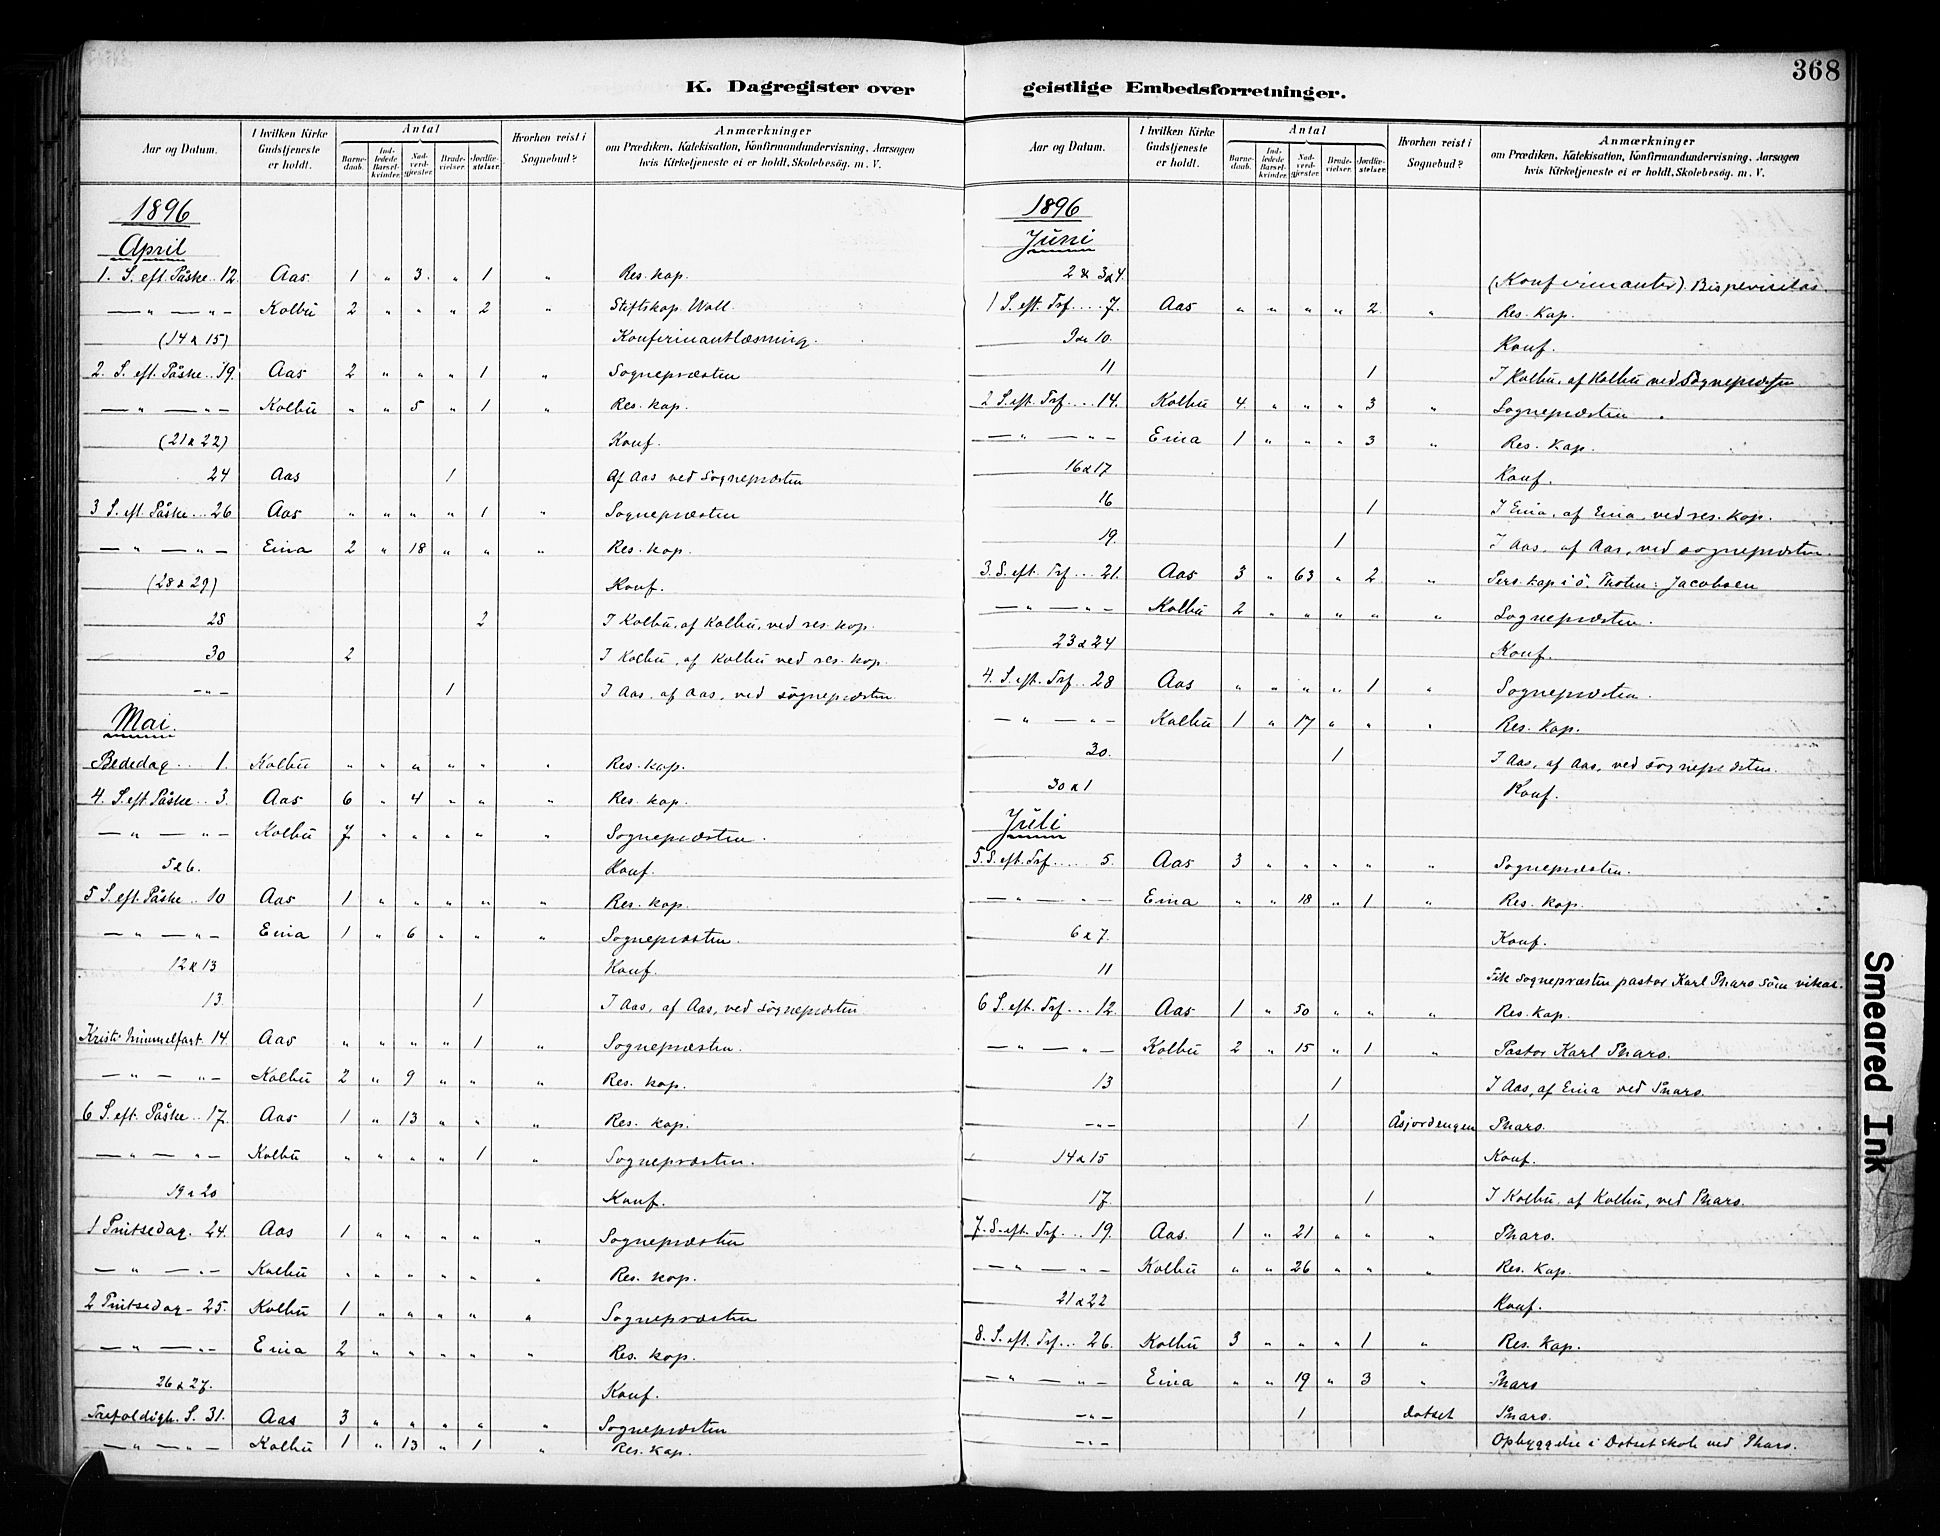 368
K. Dagregister over geistlige Embedsforretninger.
Aar og Datum. | I hvilken Kirke Gudstjeneste er holdt. | Antal | Barnedaab. | Indledede Barselkvinder. | Nadverdgjester. | Brudevielser. | Jordfæstelser. | Hvorhen reist i Sognebud? | Anmærkninger om Prædiken, Katekisation, Konfirmandundervisning, Aarsagen hvis Kirketjeneste ei er holdt, Skolebesøg. m. V.
1896
April
1. S. eft. Påske .. 12. Aas 1 " 3. " 1 " Res. kap.
— " — " – Kolbu 2 " " " 2 " Stiftskap. Woll
(14 & 15) Konfirmantlæsning.
2. S. eft. Påske .. 19. Aas 2 " " " 1 " Sognepræsten
— " — " – Kolbu " " 5 " 1 " Res. kap.
(21 & 22) Konf.
24 Aas 1 Af Aas ved Sognepræsten
3 S. eft. Påske ... 26 Aas " " " " 1 " Sognepræsten
— " — " – Eina 2 " 18 " " " Res. kap.
(28 & 29) Konf.
28 2 I Kolbu, af Kolbu, ved res. kap.
30 2 I Kolbu, af Kolbu ved res. kap.
– " – 1 I Aas, af Aas, ved sognepræsten
Mai.
Bededag ... 1. Kolbu " " " " " " Res. kap.
4. S. eft. Påske .. 3. Aas 6 " 4 " " " Res. kap.
— " — " – Kolbu 7 " " " " " Sognepræsten.
5 & 6. Konf.
5 S. eft. Påske .. 10 Aas 1 " " " " " Res. kap.
— " — " – Eina 1 " 6 " " " Sognepræsten.
12 & 13 Konf.
13. 1 I Aas, af Aas, ved sognepræsten
Kristi himmelfart. 14. Aas " " " " 1 " Sognepræsten.
— " — " – Kolbu 2 " 9 " " " Res. kap.
6 S. eft. Påske .. 17. Aas 1 " 13 " " " Res. kap.
— " — " – Kolbu " " " " 1 " Sognepræsten.
19 & 20 Konf.
1 Pintsedag. 24. Aas 1 " " " " " Sognepræsten
— " — " – Kolbu " " " " " " Res. kap.
2 Pintsedag – 25. Kolbu 1 " " " " " Sognepræsten
— " — " – Eina 2 " " " " " Res. kap.
26 & 27. Konf.
Trefoldigh. S. 31. Aas 3 " " " " " Sognepræsten
— " — " – Kolbu 1 " 13 " 1 " Res. kap.
Aar og Datum. | I hvilken Kirke Gudstjeneste er holdt. | Antal | Barnedaab. | Indledede Barselkvinder. | Nadverdgjester. | Brudevielser. | Jordfæstelser. | Hvorhen reist i Sognebud? | Anmærkninger om Prædiken, Katekisation, Konfirmandundervisning, Aarsagen hvis Kirketjeneste ei er holdt, Skolebesøg. m. V.
1896
Juni
2 & 3 & 4. (Konfirmanter). Bispevisitas.
1 S. eft. Tref .... 7. Aas " " " " 2. " Res. Kap.
9 & 10. Konf.
11 1 I Kolbu, af Kolbu ved Sognepræsten
2 S. eft. Tref .... 14. Kolbu 4. " " " 3 " Sognepræsten.
— " — " – Eina 1 " " " 3 " Res. Kap.
16 & 17 Konf.
16 1 I Eina, af Eina, ved res. kap.
19. 1 I Aas, af Aas, ved sognepræsten.
3. S. eft. Tref ... 21. Aas 3 " 63 " 2 " Pers. kap i ö. Thoten: Jacobsen
— " — " – Kolbu 2 " " " " " Sognepræsten.
23 & 24 Konf.
4. S. eft. Tref .. 28 Aas " " " " 1 " Sognepræsten.
— " — " – Kolbu 1 " 17 " " " Res. Kap.
30. 1 I Aas, af Aas, ved sognepræsten.
30 & 1 Konf.
Juli
5. S. eft. Tref ..... 5. Aas 3 " " " " " Sognepræsten.
— " — " – Eina " " 18 " 1 " Res. kap.
6 & 7. Konf.
11 Fik Sognepræsten pastor Karl Thars som vikar.
6 S. eft. Tref .... 12. Aas 1 " 50 " " " Res. kap.
— " — " – Kolbu 2 " 15 " 1 " Pastor Karl Thars.
13 1 I Aas, af Eina ved Thars.
– " – 1 Åsjordengen Thars.
14 & 15 Konf.
17. 1 I Kolbu, af Kolbu, ved Thars.
7. S. eft. Tref ... 19. Aas. 1 " 21 " " " Thars.
— " — " – Kolbu " " 26 " " " Res. Kap.
21 & 22 Konf.
8. S. eft. Tref ... 26. Kolbu 3 " " " 1 " Res. Kap.
— " — " – Eina " " 19 " 3 " Thars
– " – 1 Dotset Thars.
– " – Opbyggelse i Dotset skole ved Thars.
Smeared Ink